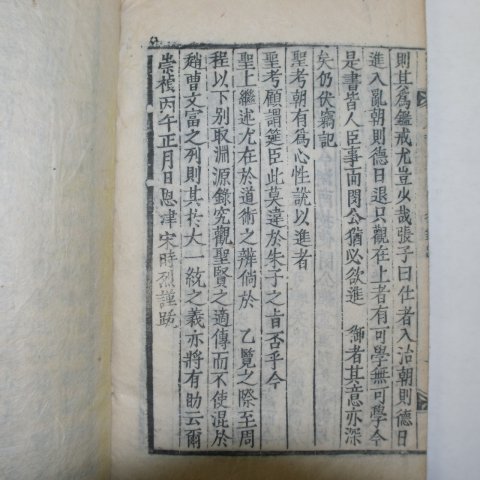 則其爲鑑戒尤豈少哉張子曰仕者入治朝則德日
進入亂朝則德日退只觀在上者有可學無可學今
是書皆人臣事而閔公猶必欲進 御者其意亦深
矣仍伏竊記
聖考朝有爲心性說以進者
聖考顧謂筵臣此莫違於朱子之旨否乎今
聖上繼述尤在於道術之辨倘於 乙覽之際至周
程以下別取淵源錄究觀聖賢之適傳而不使混於
趙曹文富之列則其於大一統之義亦將有助云爾
崇禎丙午正月日恩津宋時烈謹跋